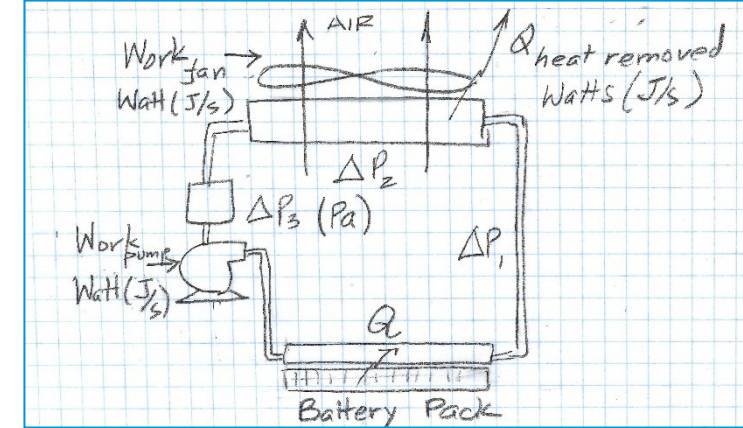 AIR
Work fan
Watt (J/s)
Q heat removed
Watts (J/s)
ΔP₂
ΔP₃ (Pa)
Work pump
Watt (J/s)
ΔP₁
Q
Battery Pack